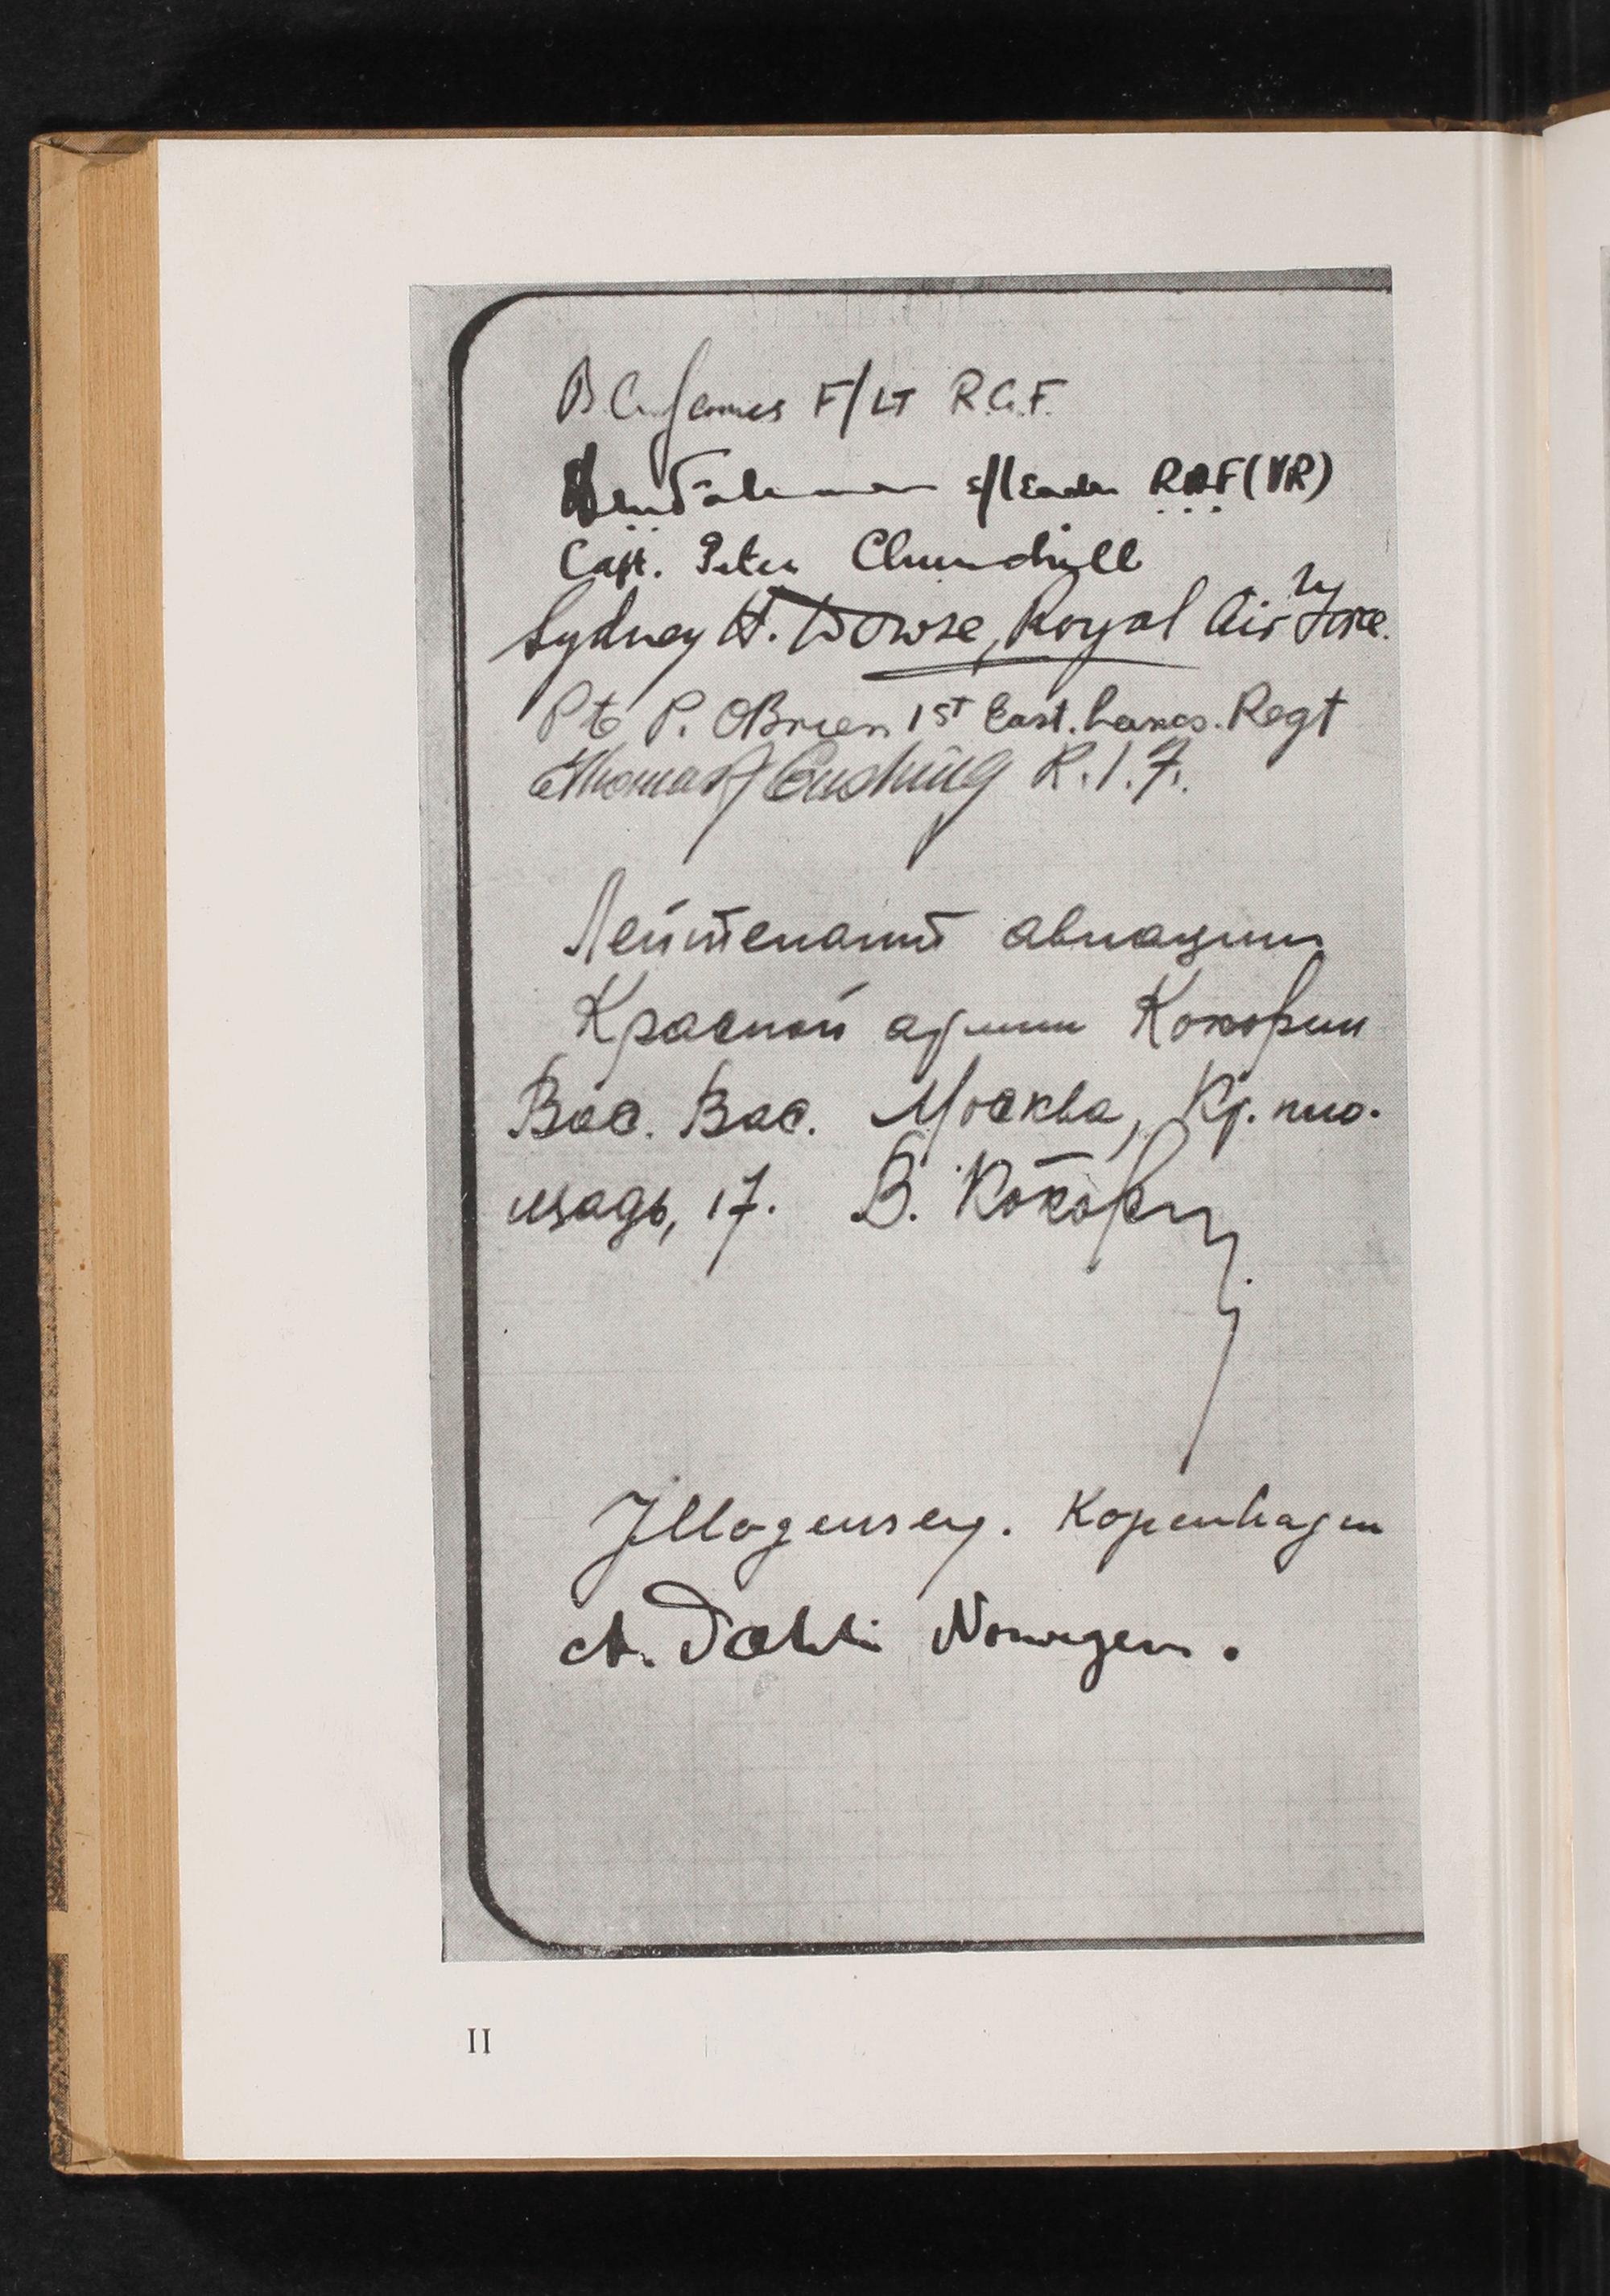 B.A. James F/LT R.A.F.
S/Leader RAF (VR)
Capt. Peter Churchill
Sydney H. Dowse, Royal Air Force.
Pte P. OBrien 1ST East. Lancs. Regt
Thomas J Cushing R.I.F.
Лейтенант авиации
Красной армии Кокорин
Вас. Вас. Москва, Кр. пло-
щадь, 17. В. Кокорин
JMogensen. Kopenhagen
A. Dæhli Norwegen.
II